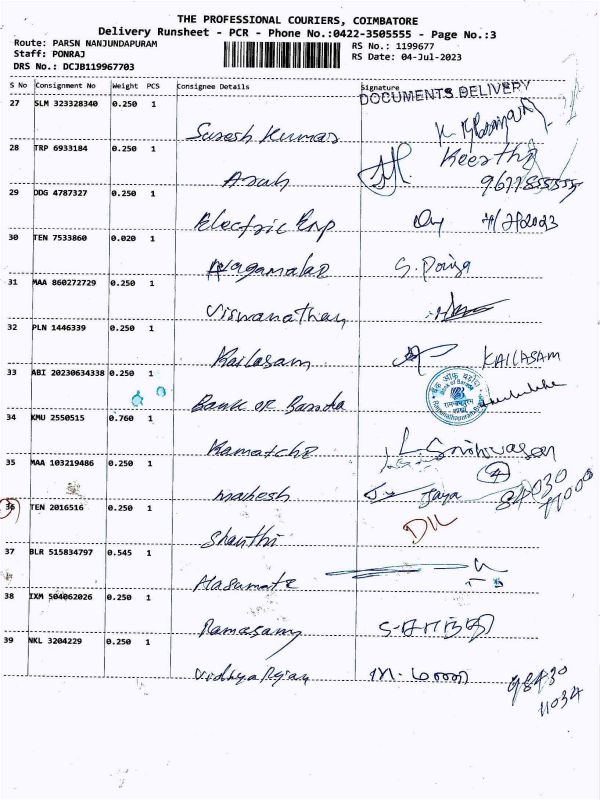 THE PROFESSIONAL COURIERS, COIMBATORE
Delivery Runsheet - PCR - Phone No.:0422-3505555 - Page No.:3
Route: PARSN NANJUNDAPURAM
Staff: PONRAJ
DRS No.: DCJB119967703
RS No.: 1199677
RS Date: 04-Jul-2023
S No Consignment No Weight PCS Consignee Details Signature
DOCUMENTS DELIVERY
27 SLM 323328340 0.250 1
Suresh Kumar
28 TRP 6933184 0.250 1
Keertha
Arah
29 DDG 4787327 0.250 1
Electric Enp
30 TEN 7533860 0.020 1
Nagamalar
31 MAA 860272729 0.250 1
Viswanathan
32 PLN 1446339 0.250 1
Kailasam KAILASAM
33 ABI 20230634338 0.250 1
Bank of Baroda
34 KMU 2550515 0.760 1
Kamatche L. Srinivasan
35 MAA 103219486 0.250 1
Mahesh Jaya 98430
36 TEN 2016516 0.250 1
Shanthi DIL
37 BLR 515834797 0.545 1
38 IXM 504062026 0.250 1
Ramasamy
39 NKL 3204229 0.250 1
Vidhya Rajan
98430
11034